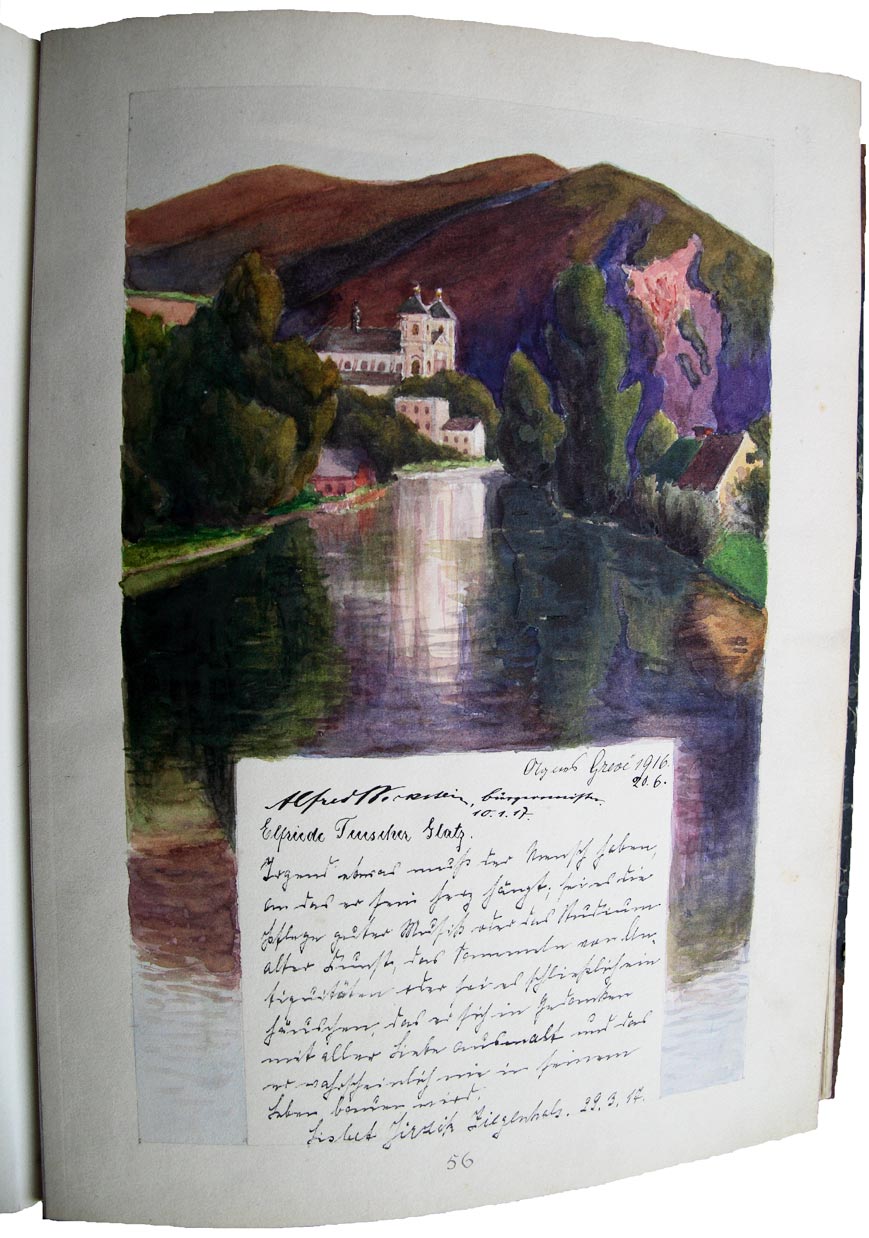 Agnes Grevé 1916.
20.6.
Alfred, Bürgermeister
10.1.17.
Elfriede Tuscher Glatz.
Irgend etwas muß der Mensch haben,
an das er sein Herz hängt; sei es die
Pflege guter Musik oder das Studium
alter Kunst, das Sammeln von An-
tiquitäten oder sei es schließlich ein
Häuschen, das er sich in Gedanken
mit aller Liebe ausmalt und das
er wahrscheinlich nie in seinem
Leben bauen wird.
Lisbet Ziegenhals. 29.3.17.
56